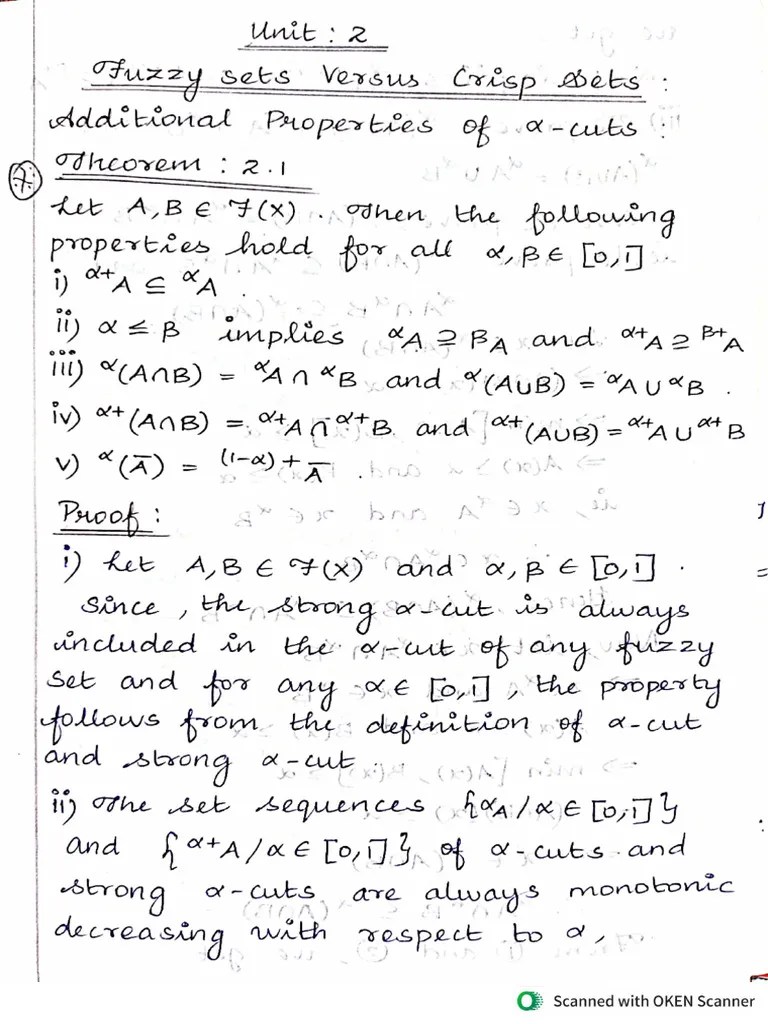 Unit : 2
Fuzzy sets Versus Crisp Sets :
Additional Properties of α-cuts :
⑦ Theorem : 2.1
Let A, B ∈ F(X). Then the following
properties hold for all α, β ∈ [0,1].
i) ᵅ⁺A ⊆ ᵅA.
ii) α ≤ β implies ᵅA ⊇ ᵝA and ᵅ⁺A ⊇ ᵝ⁺A
iii) ᵅ(A∩B) = ᵅA ∩ ᵅB and ᵅ(A∪B) = ᵅA ∪ ᵅB.
iv) ᵅ⁺(A∩B) = ᵅ⁺A ∩ ᵅ⁺B and ᵅ⁺(A∪B) = ᵅ⁺A ∪ ᵅ⁺B
v) ᵅ(A̅) = ⁽¹⁻ᵅ⁾⁺A̅.
Proof :
i) Let A, B ∈ F(X) and α, β ∈ [0,1].
Since, the strong α-cut is always
included in the α-cut of any fuzzy
set and for any α ∈ [0,1], the property
follows from the definition of α-cut
and strong α-cut.
ii) The set sequences {ᵅA / α ∈ [0,1]}
and {ᵅ⁺A / α ∈ [0,1]} of α-cuts and
strong α-cuts are always monotonic
decreasing with respect to α,
Scanned with OKEN Scanner